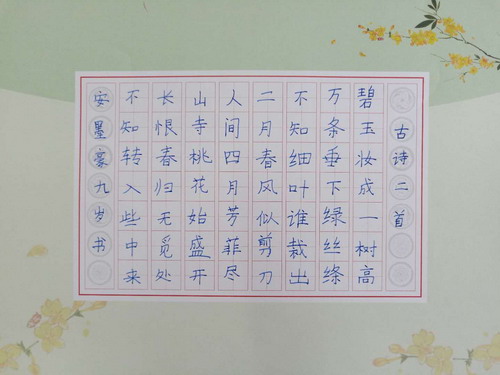 古诗二首
碧玉妆成一树高
万条垂下绿丝绦
不知细叶谁裁出
二月春风似剪刀
人间四月芳菲尽
山寺桃花始盛开
长恨春归无觅处
不知转入些中来
安墨豪九岁书